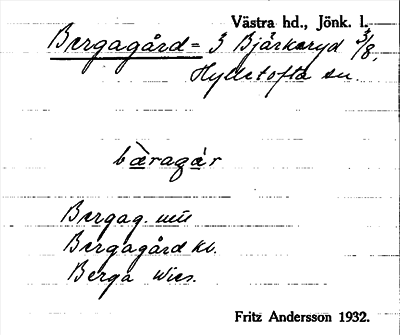 Västra hd., Jönk. l.
Bergagård = 3 Bjärkaryd 3/8,
Hylletofta sn.
bàragár
Bergag. uu
Bergagård kv.
Berga Wies.
Fritz Andersson 1932.